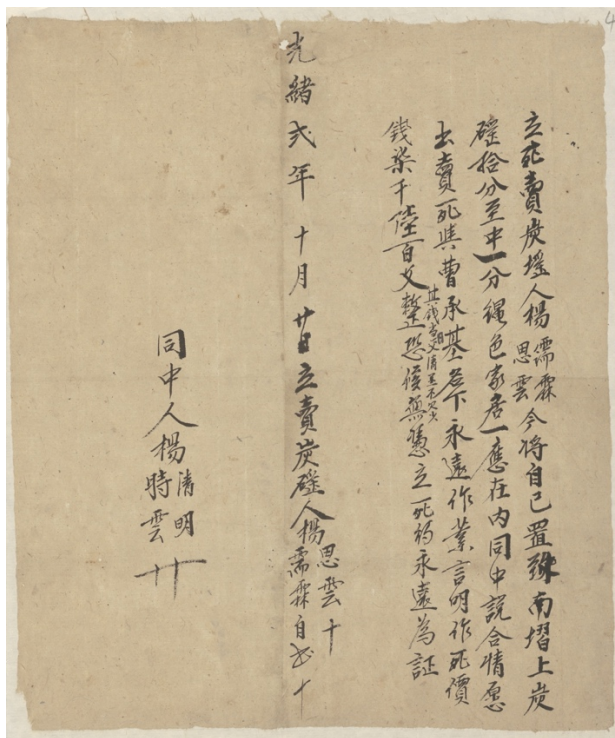 立死賣炭磘人楊儒霖思雲今將自己置分南塔上炭
磘拾分至中一分繩色家居一應在内同中說合情愿
出賣死與曹承基名下永遠作業言明作死價
錢柒千陸百文整其錢當交清並不欠少恐後無憑立死約永遠為証
光緒弍年十月廿日立賣炭磘人楊思雲十儒霖自書十
同中人楊清明時雲十十
4